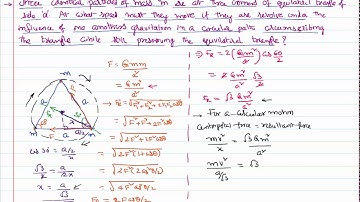 → Three identical particles of mass 'm' are at three corners of equilateral triangle of
side 'a'. At what speed must they move if they are revolve under the
influence of one another's gravitation in a circular path circumscribing
the triangle circle still preserving the equilateral triangle?
F = Gmm
a²
F = Gm²
a²
→ FR = √F²+F²+2F²cosθ
= √F²+F²+2F²cosθ
= √2F²+2F²cosθ
= √2F²(1+cosθ)
= √2F²(2cos²θ/2)
= √4F²cos²θ/2
FR = 2F cosθ/2
m
a
a
m
a
m
cos 30 = a/2
x
√3 = a
2 2x
x = a
√3
⇒ FR = 2(Gm²/a²) cos 60/2
= 2 Gm² √3
a² 2
FR = √3 Gm²
a²
→ For a circular motion
Centripetal force = resultant force
mv² = √3 Gm²
x a²
mv² = √3
a/√3